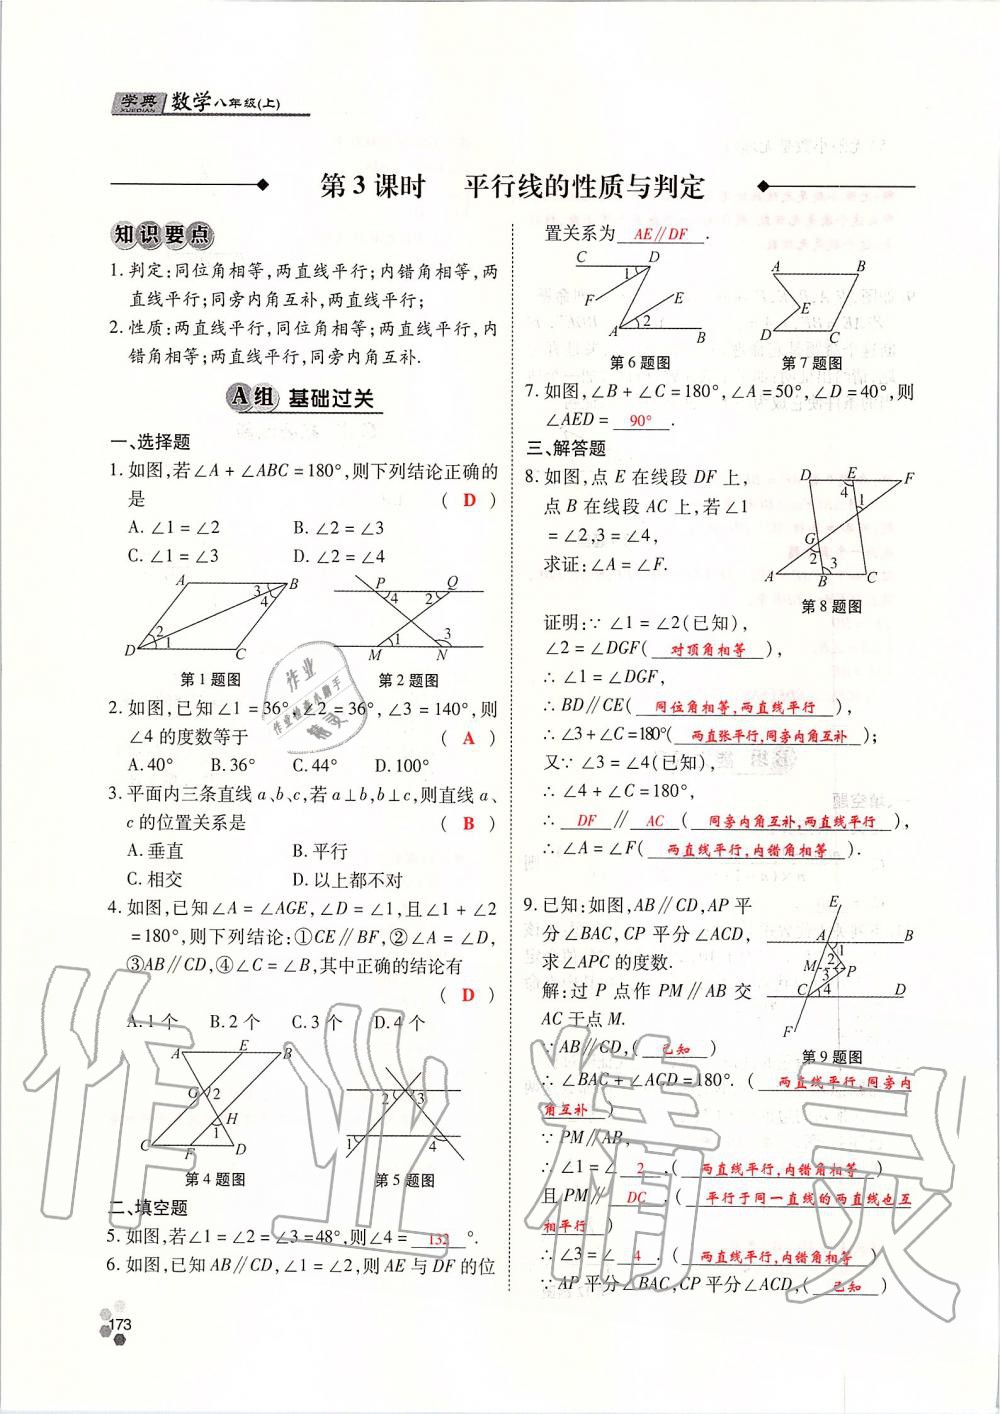 学典 XUEDIAN 数学八年级(上)
第3课时 平行线的性质与判定
知识要点
1. 判定:同位角相等,两直线平行;内错角相等,两
直线平行;同旁内角互补,两直线平行;
2. 性质:两直线平行,同位角相等;两直线平行,内
错角相等;两直线平行,同旁内角互补.
A组 基础过关
一、选择题
1. 如图,若∠A+∠ABC=180°,则下列结论正确的
是 ( D )
A. ∠1=∠2 B. ∠2=∠3
C. ∠1=∠3 D. ∠2=∠4
A B 3 4 2 1 D C
P Q 4 2 1 3 M N
第1题图 第2题图
2. 如图,已知∠1=36°,∠2=36°,∠3=140°,则
∠4的度数等于 ( A )
A. 40° B. 36° C. 44° D. 100°
3. 平面内三条直线a、b、c,若a⊥b,b⊥c,则直线a、
c的位置关系是 ( B )
A. 垂直 B. 平行
C. 相交 D. 以上都不对
4. 如图,已知∠A=∠AGE,∠D=∠1,且∠1+∠2
=180°,则下列结论:①CE∥BF,②∠A=∠D,
③AB∥CD,④∠C=∠B,其中正确的结论有
( D )
A. 1个 B. 2个 C. 3个 D. 4个
A E B G 2 H 1 C F D
2 3 1 4
第4题图 第5题图
二、填空题
5. 如图,若∠1=∠2=∠3=48°,则∠4= 132 °.
6. 如图,已知AB∥CD,∠1=∠2,则AE与DF的位
173
置关系为 AE∥DF .
C D 1 F E A 2 B
A B E D C
第6题图 第7题图
7. 如图,∠B+∠C=180°,∠A=50°,∠D=40°,则
∠AED= 90° .
三、解答题
8. 如图,点E在线段DF上,
点B在线段AC上,若∠1
=∠2,∠3=∠4,
求证:∠A=∠F.
D E F 4 1 G 2 3 A B C
第8题图
证明:∵∠1=∠2(已知),
∠2=∠DGF( 对顶角相等 ),
∴∠1=∠DGF,
∴BD∥CE( 同位角相等,两直线平行 ),
∴∠3+∠C=180°( 两直张平行,同旁内角互补 );
又∵∠3=∠4(已知),
∴∠4+∠C=180°,
∴ DF ∥ AC ( 同旁内角互补,两直线平行 ),
∴∠A=∠F( 两直线平行,内错角相等 ).
9. 已知:如图,AB∥CD,AP平
分∠BAC,CP平分∠ACD,
求∠APC的度数.
解:过P点作PM∥AB交
AC于点M.
E A B 1 2 M P 3 C 4 D F
第9题图
∵AB∥CD,( 已知 )
∴∠BAC+∠ACD=180°. ( 两直线平行,同旁内
角互补 )
∵PM∥AB,
∴∠1=∠ 2 .( 两直线平行,内错角相等 )
且PM∥ DC .( 平行于同一直线的两直线也互
相平行 )
∴∠3=∠ 4 .( 两直线平行,内错角相等 )
∵AP平分∠BAC,CP平分∠ACD,( 已知 )
作业精灵
作业
作业检查小助手
精灵